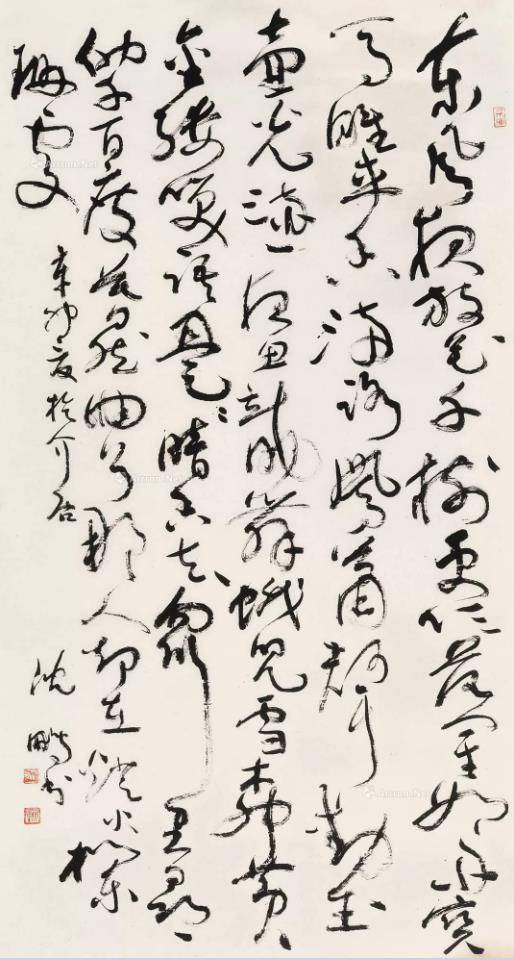 東風夜放花千樹更吹落星如雨寶
馬雕車香滿路鳳簫聲動玉
壺光轉一夜魚龍舞蛾兒雪柳黃
金縷笑語盈盈暗香去眾里尋
他千百度驀然回首那人却在燈火闌
珊處
辛卯夏於介居
沈鵬書